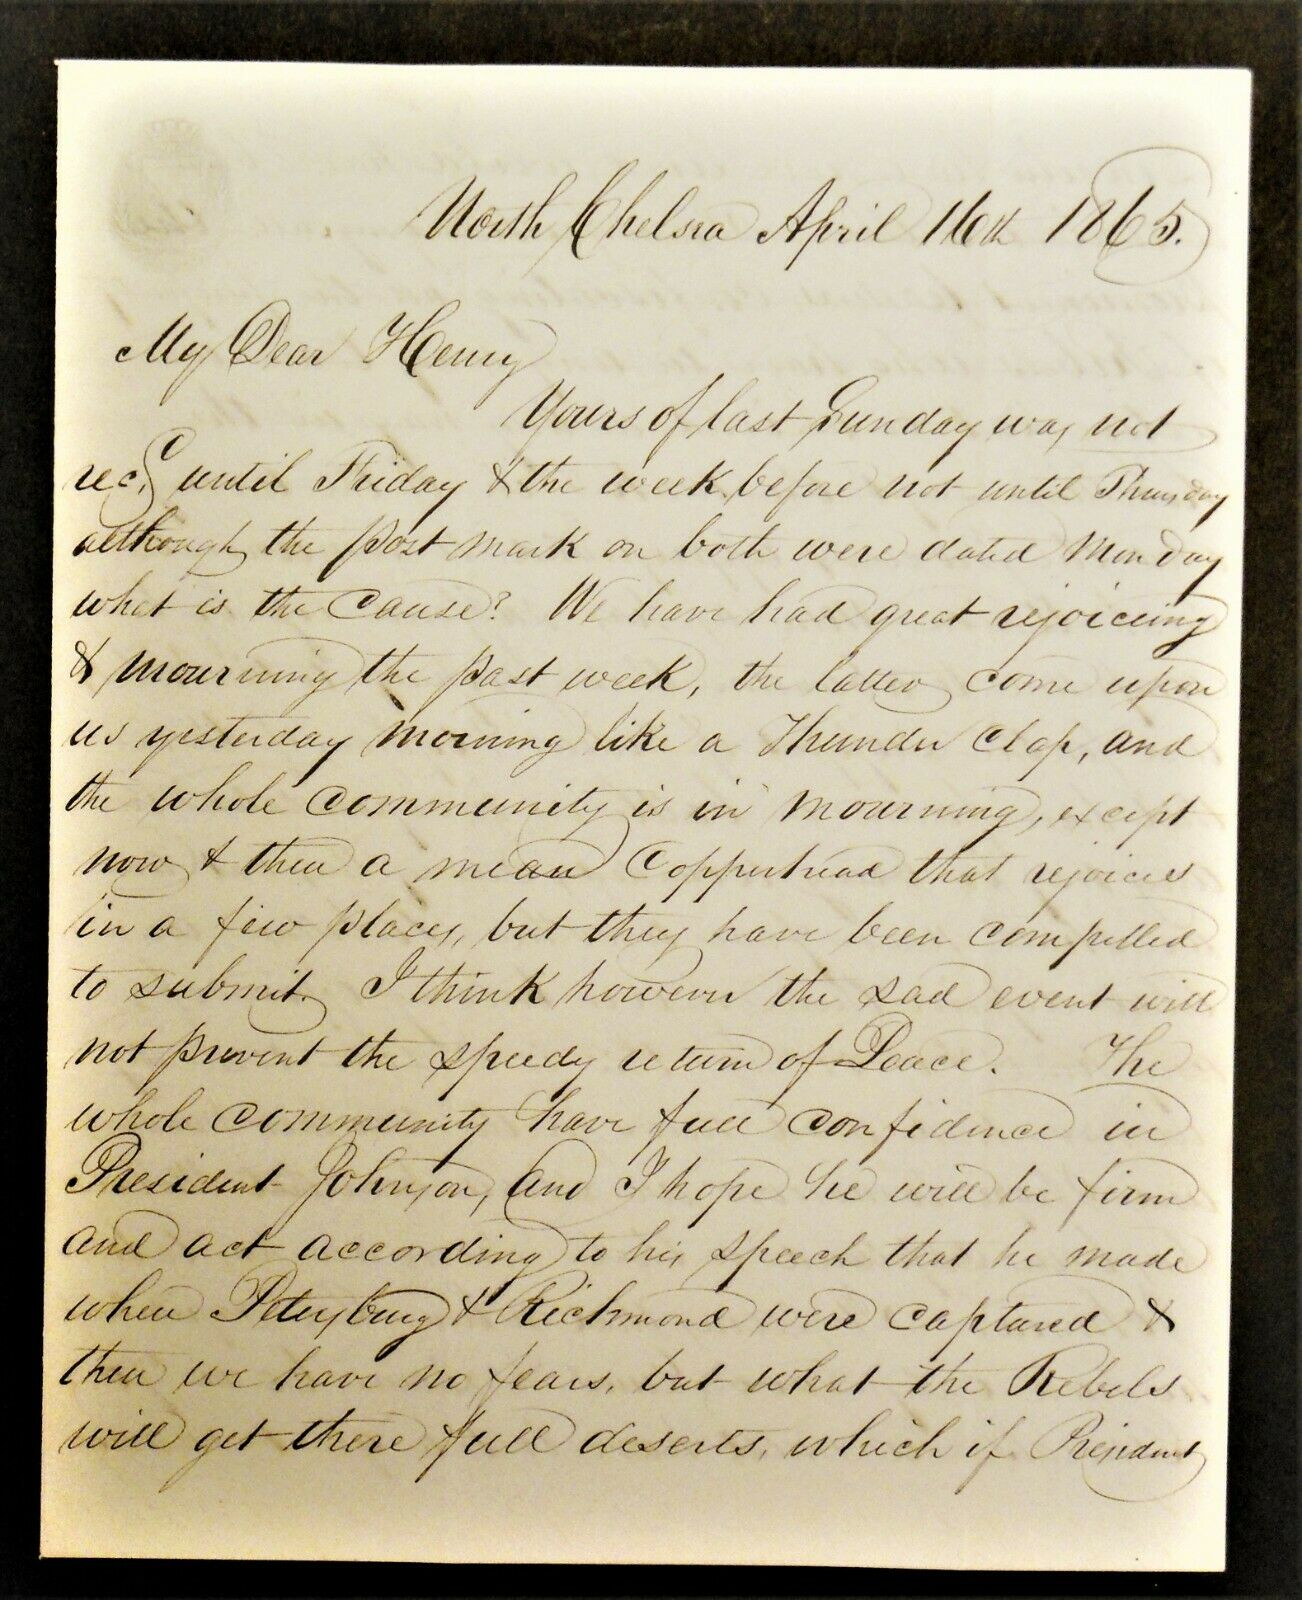 North Chelsea April 16th 1865.
My Dear Henry
Yours of last Sunday was not
recd until Friday & the week before not until Thursday
although the post mark on both were dated Monday
what is the cause? We have had great rejoiceing
& mourning the past week, the latter come upon
us yesterday morning like a Thunder Clap, and
the whole community is in mourning, except
now & then a mean Copperhead that rejoices
in a few places, but they have been compelled
to submit. I think however the sad event will
not prevent the speedy return of Peace. The
whole community have full confidence in
President Johnson, and I hope he will be firm
and act according to his speech that he made
when Petersburg & Richmond were captured &
then we have no fears, but what the Rebels
will get there full deserts, which if President